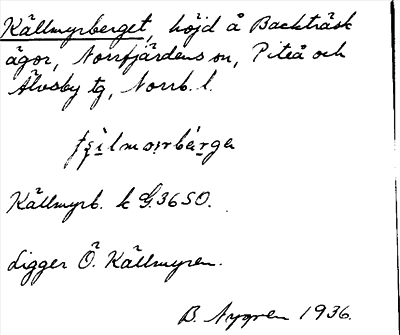 Källmyrberget, höjd å Backträsk
ägor, Norrfjärdens sn, Piteå och
Älvsby tg, Norrb. l.
Källmyrb. k G. 36 SO.
Ligger Ö. Källmyren.
B. Nygren 1936.